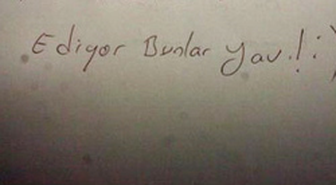 Ediyor Bunlar yav.! :)